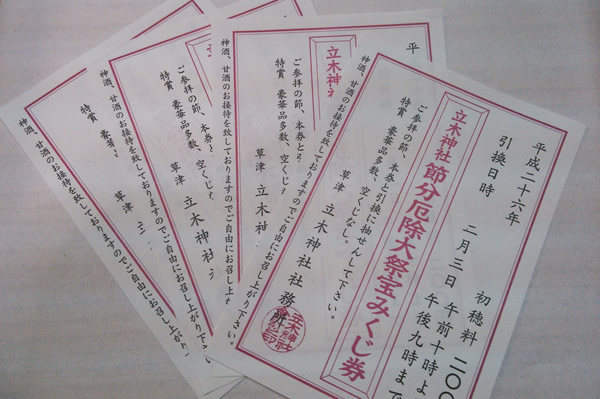 平成二十六年
初穂料 二〇
引換日時 二月三日 午前十時よ
午後九時まで
立木神社 節分厄除大祭宝みくじ券
ご参拝の節、本券と引換に抽せんして下さい。
特賞 豪華品多数、空くじなし。
草津 立木神社社務所
平
立木神社
ご参拝の節、本券と引
特賞 豪華品多数、空くじ
草津 立木神
神酒、甘酒のお接待を致しておりますのでご自由にお召し上がり下さい。
特賞 豪華品多数、空くじ
草津 立木神社
神酒、甘酒のお接待を致しておりますのでご自由にお召し上が
特賞 豪華
草津
神酒、甘酒のお接待を致しておりますのでご自由にお召し上がり